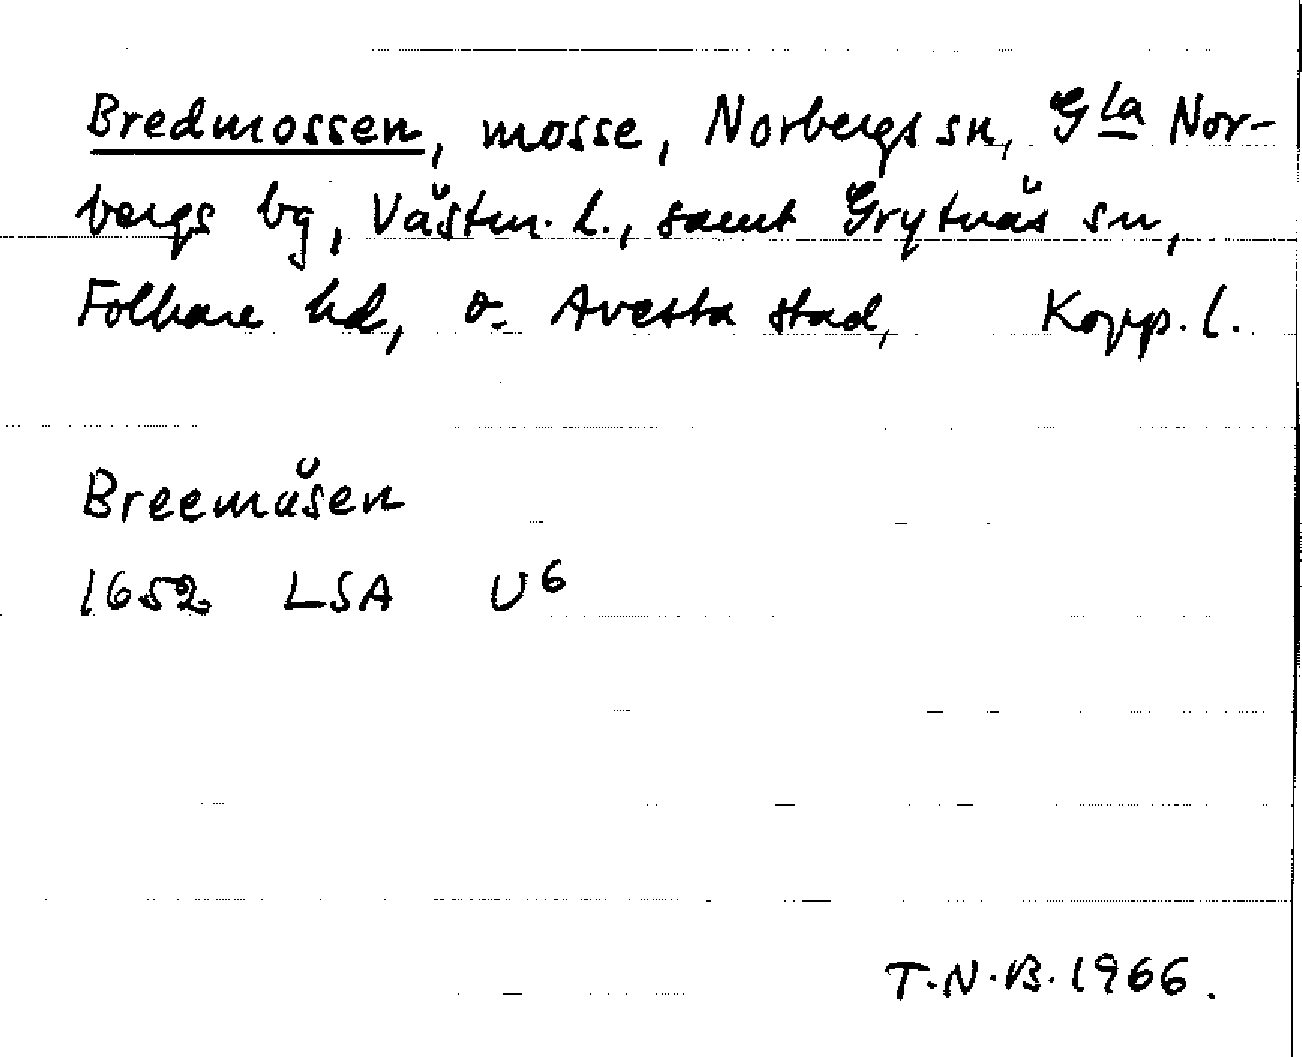 Bredmossen, mosse, Norbergs sn, Gla Nor-
bergs bg, Västm. l., samt Grytnäs sn,
Folkare hd, o. Avesta stad, Kopp. l.
Breemåsen
1652 LSA U6
T.N.B. 1966.